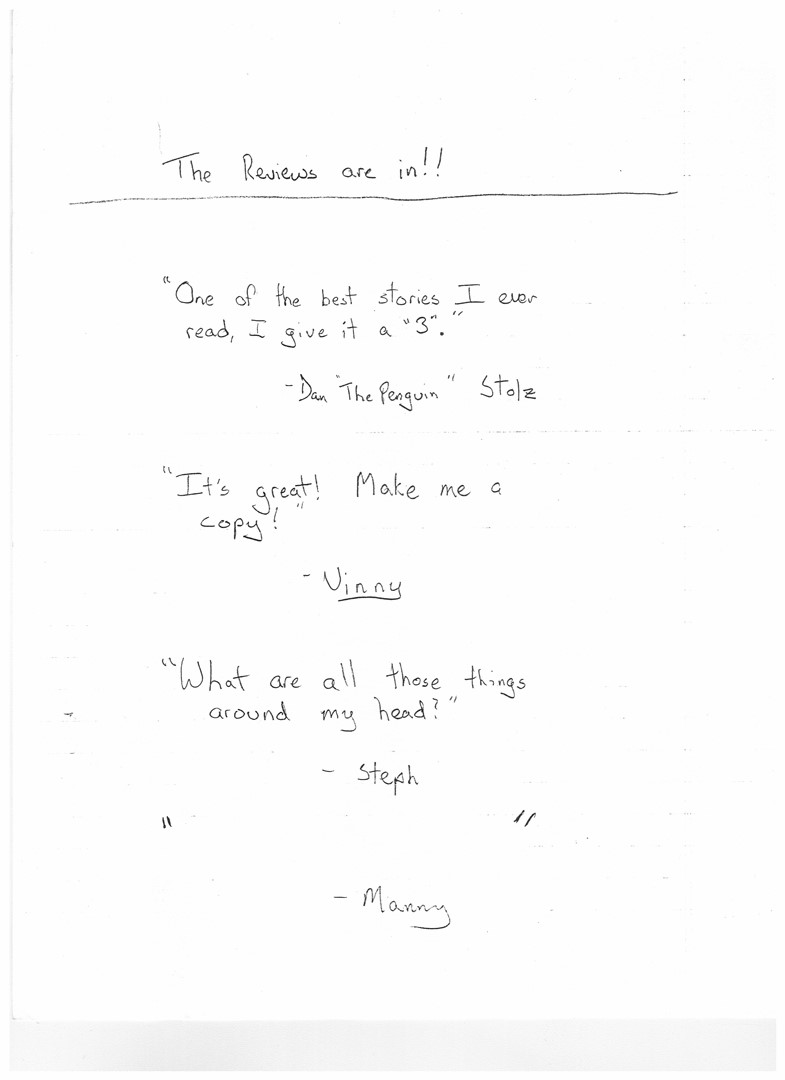 The Reviews are in!!
"One of the best stories I ever
read, I give it a "3"."
-Dan "The Penguin" Stolz
"It's great! Make me a
copy!"
- Vinny
"What are all those things
around my head?"
- Steph
" "
- Manny